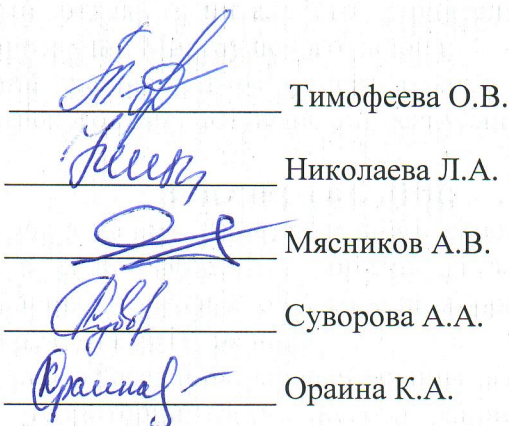 Тимофеева О.В.
Николаева Л.А.
Мясников А.В.
Суворова А.А.
Ораина К.А.